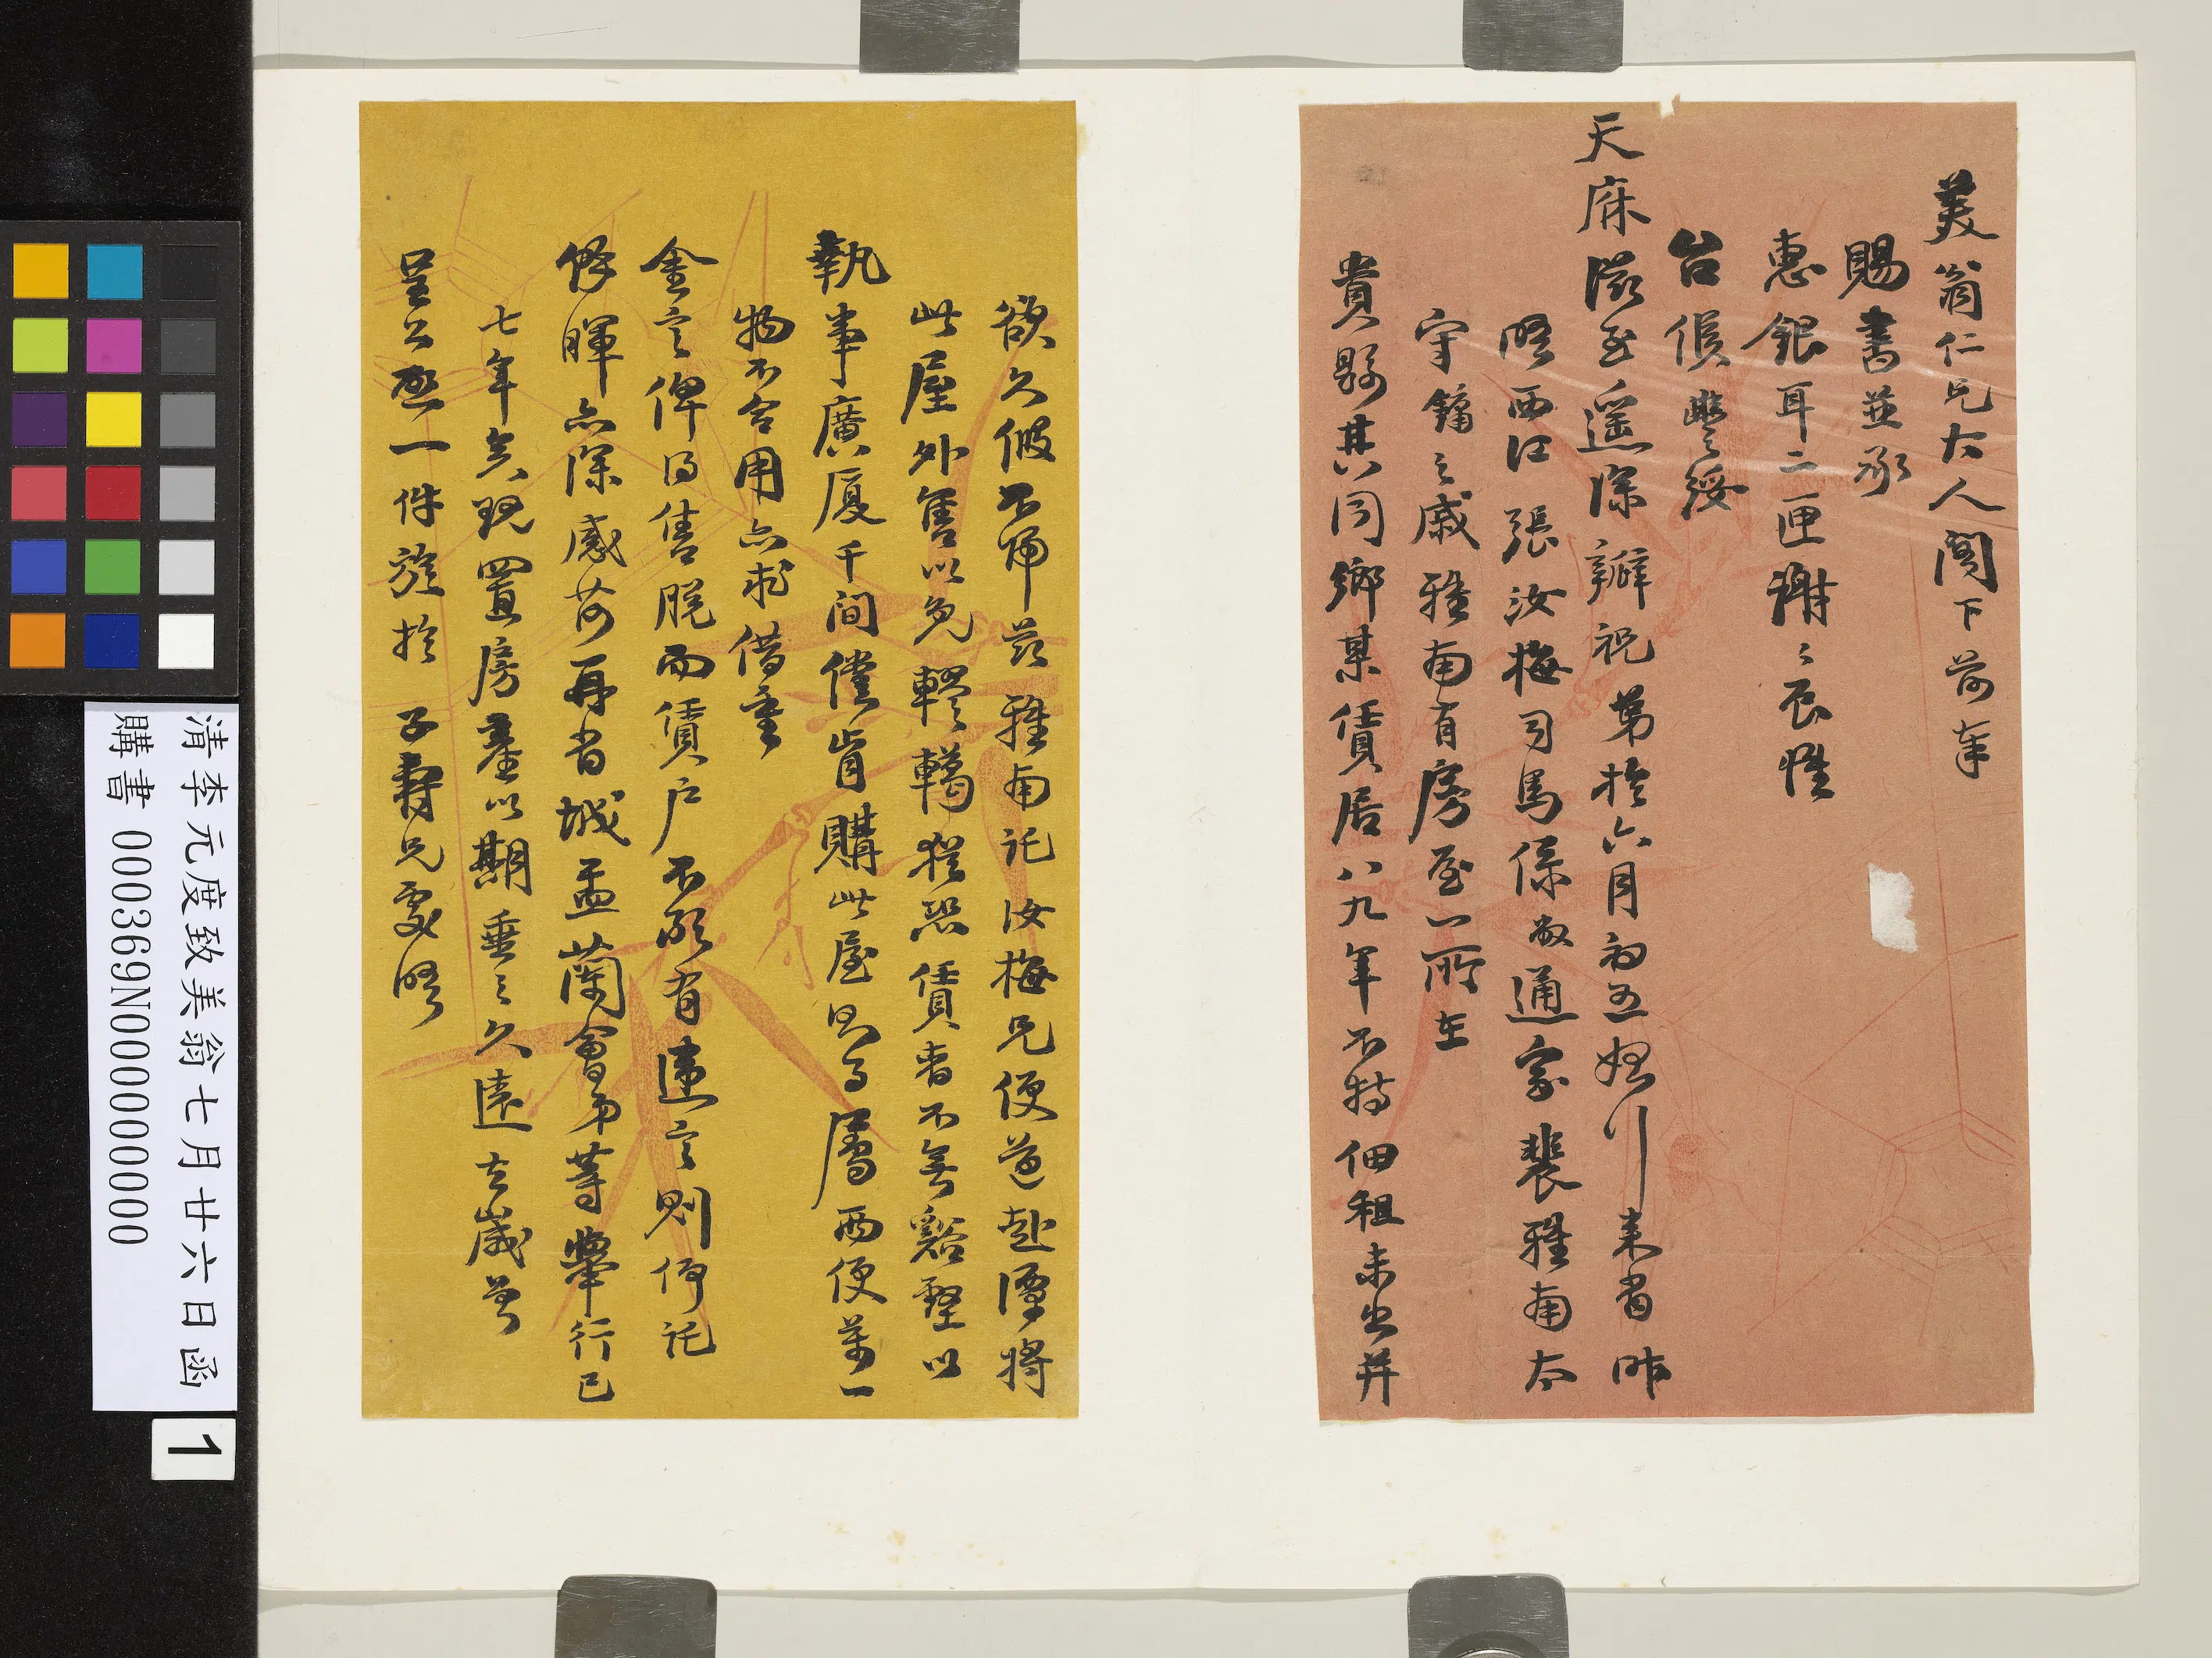 美翁仁兄大人閣下前奉
賜書並承
惠銀耳二匣謝々辰惟
台候豐綏
天庥滋至遥深瓣祝弟於六月初五 川來省昨
晤西江張汝梅司馬係敝通家裴雅南太
守鏞之戚雅南有房屋一所在
貴縣其同鄉某賃居八九年不特佃租未出并
欲久假不歸茲雅南託汝梅兄便道赴潭將
此屋外售以免轇轕猶恐賃者不無谿壑以
執事廣厦千間儻肯購此屋則為屬兩便萬一
物不合用亦求借重
金言俾得售脫而賃戶不敢有違言則仰託
餘暉亦深感荷再省城盂蘭會弟等舉行已
七年矣現置房產以期垂之久遠去歲曾
呈公啟一件旋於 子壽兄處晤
清李元度致美翁七月廿六日函
購書 000369N000000000
1